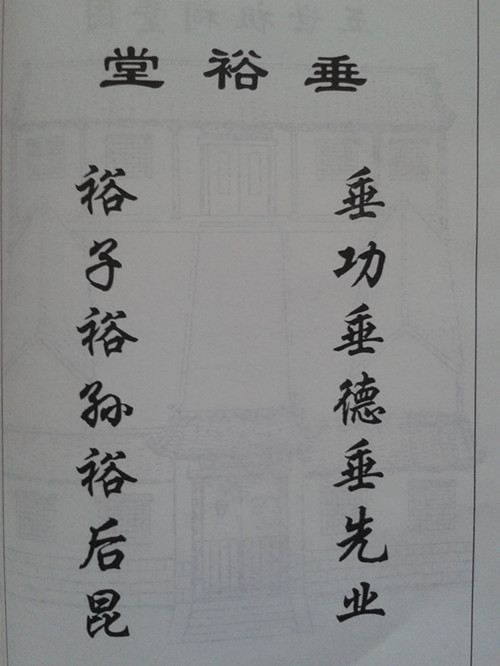 垂裕堂
垂功垂德垂先业
裕子裕孙裕后昆